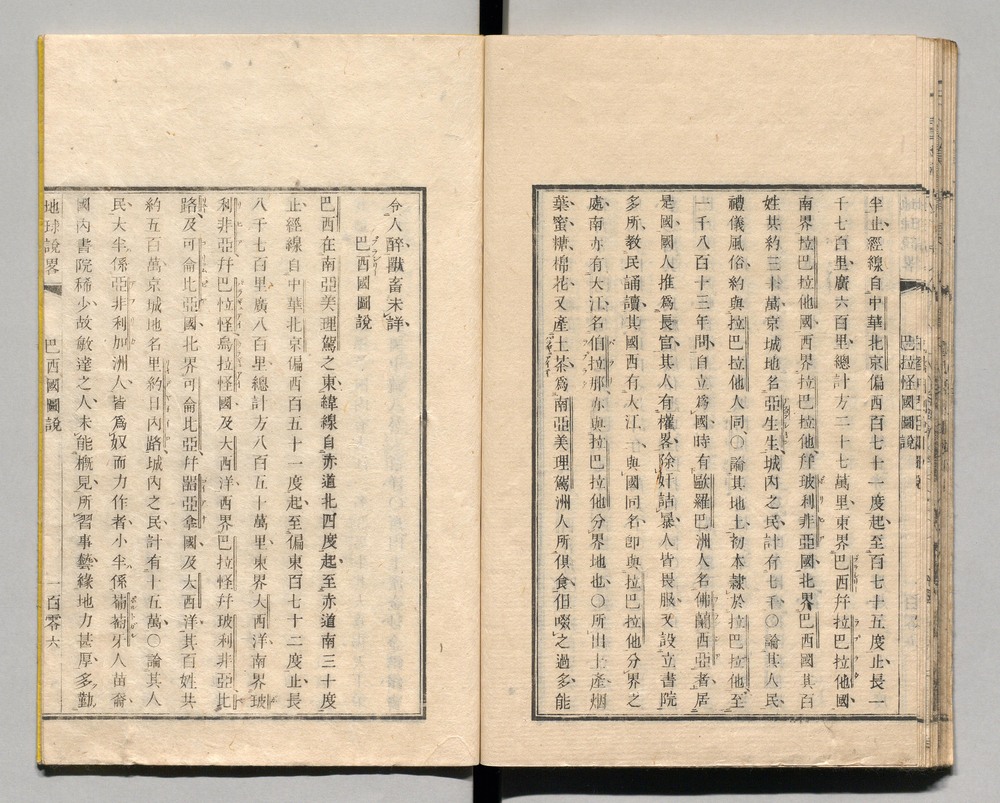 半止經線自中華北京偏西百七十一度起至百七十五度止長一
千七百里廣六百里總計方二十七萬里東界巴西幷拉巴拉他國
南界拉巴拉他國西界拉巴拉他幷玻利非亞國北界巴西國其百
姓共約三十萬京城地名亞生生城內之民計有七千〇論其人民
禮儀風俗約與拉巴拉他人同〇論其地土初本隷於拉巴拉他至
一千八百十三年間自立爲國時有歐羅巴洲人名佛蘭西亞者居
是國國人推爲長官其人有權畧除奸詰暴人皆畏服又設立書院
多所教民誦讀其國西有大江一與國同名卽與拉巴拉他分界之
處南亦有大江名伯拉那亦與拉巴拉他分界地也〇所出土產烟
葉蜜糖棉花又產土茶爲南亞美理駕洲人所俱食但啜之過多能
令人醉獸畜未詳
巴西國圖說
巴西在南亞美理駕之東緯線自赤道北四度起至赤道南三十度
止經線自中華北京偏西百五十一度起至偏東百七十二度止長
八千七百里廣八百里總計方八百五十萬里東界大西洋南界玻
利非亞幷巴拉怪烏拉怪國及大西洋西界巴拉怪幷玻利非亞比
路及可侖比亞國北界可侖比亞幷器亞拿國及大西洋其百姓共
約五百萬京城地名里約日內路城內之民計有十五萬〇論其人
民大半係亞非利加洲人皆爲奴而力作者小半係葡萄牙人苗裔
國內書院稀少故敏達之人未能槪見所習事藝緣地力甚厚多勤
地球說畧
巴西國圖說
一百零六